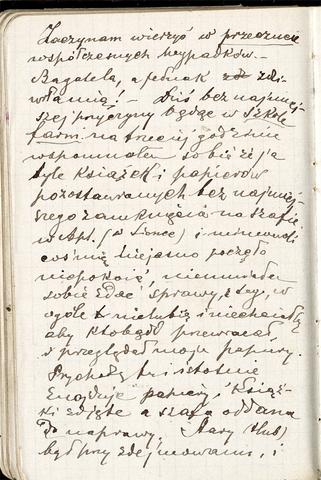 Zaczynam wierzyć w przeczucie
współczesnych wypadków. –
Bagatela, a jednak zdzi-
wiła mię! – Dziś bez najmniej-
szej przyczyny będąc w Szkole
farm. na trzeciej godzinie
wspomniałem sobie że ja
tyle książek i papierów
pozostawionych bez najmniej-
szego zamknięcia na szafie
w Apt. (w Sionce) i mimowoli
coś mię niejasno poczęło
niepokoić, nieumiałem
sobie zdać sprawy, z tego, w
ogóle nielubię i niechciałbym
aby ktobądź przewracał
i przeglądał moje papiery.
Przychodzę tu i istotnie
znajduję papiery i książ-
ki zdjęte a szafa oddana
do naprawy. Stary
był przy zdejmowaniu, i